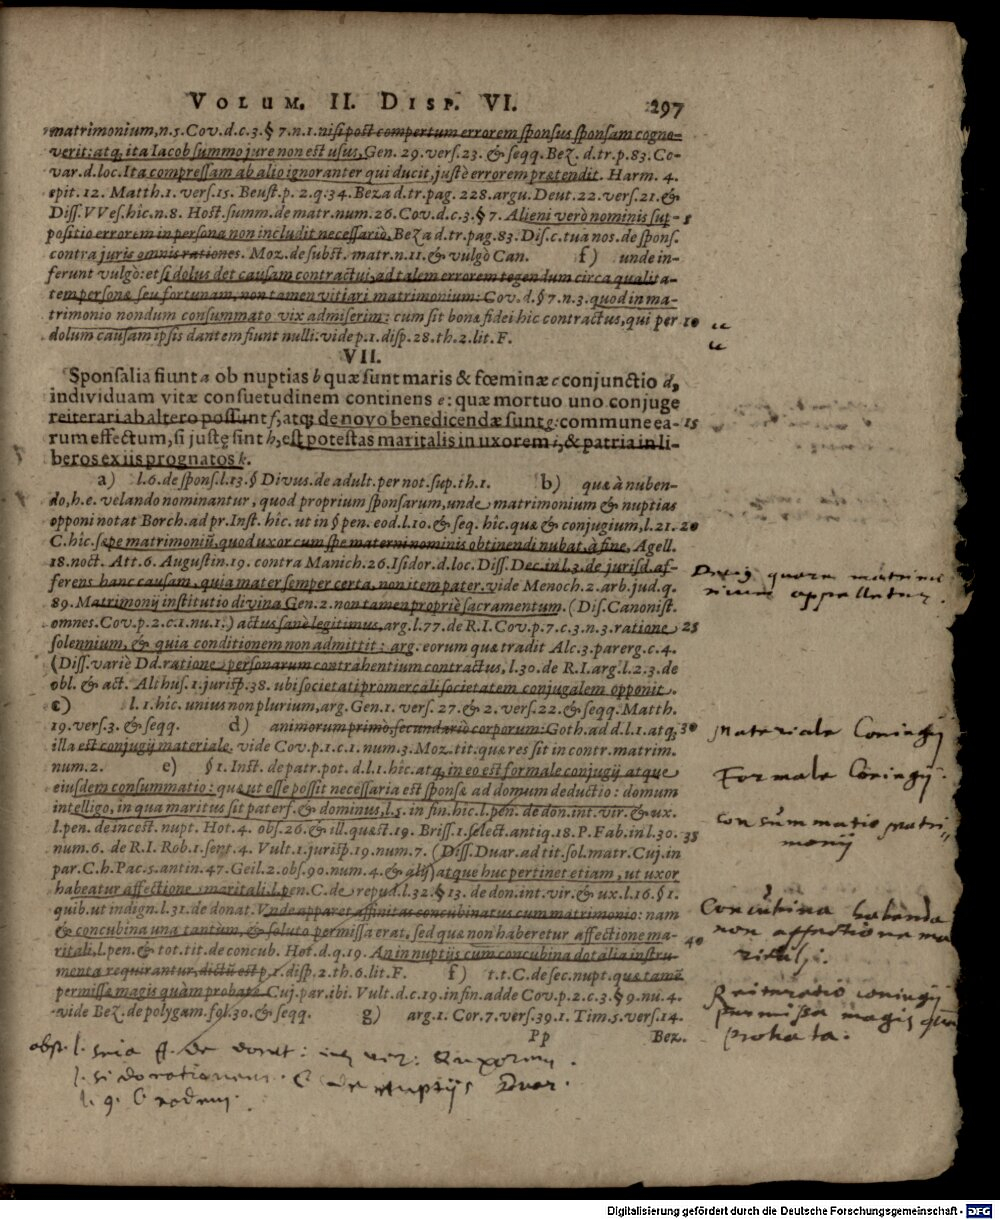 VOLUM. II. DISP. VI. 297
matrimonium, n.5. Cov. d. c. 3. § 7. n. 1. nisi post compertum errorem sponsus sponsam cogno-
verit: atq; ita Iacob summo jure non est usus, Gen. 29. vers. 23. & seqq. Bez. d. tr. p. 83. Co-
var. d. loc. Ita compressam ab alio ignoranter qui ducit, justè errorem prætendit. Harm. 4.
epit. 12. Matth. 1. vers. 15. Beust. p. 2. q. 34. Beza d. tr. pag. 228. argu. Deut. 22. vers. 21. &
Diss. VVes. hîc. n. 8. Host. summ. de matr. num. 26. Cov. d. c. 3. § 7. Alieni verò nominis sup- 5
positio errorem in persona non includit necessariò, Beza d. tr. pag. 83. Dis. c. tua nos. de spons.
contra juris omnis rationes. Moz. de subst. matr. n. 11. & vulgò Can. f) unde in-
ferunt vulgò: et si dolus det causam contractui, ad talem errorem tegendum circa qualita-
tem personæ seu fortunam, non tamen vitiari matrimonium: Cov. d. § 7. n. 3. quod in ma-
trimonio nondum consummato vix admiserim: cum sit bonæ fidei hic contractus, qui per 10
dolum causam ipsis dantem fiunt nulli. vide p. 1. disp. 28. th. 2. lit. F.
VII.
Sponsalia fiunt a ob nuptias b quæ sunt maris & fœminæ c conjunctio d,
individuam vitæ consuetudinem continens e: quæ mortuo uno conjuge
reiterari ab altero possunt f, atq; de novo benedicendæ sunt g: commune ea- 15
rum effectum, si justę sint h, est potestas maritalis in uxorem i, & patria in li-
beros ex iis prognatos k.
a) l. 6. de spons. l. 13. § Divus. de adult. per not. sup. th. 1. b) quæ à nuben-
do, h. e. velando nominantur, quod proprium sponsarum, unde matrimonium & nuptias
opponi notat Borch. ad pr. Inst. hîc. ut in § pen. eod. l. 10. & seq. hîc. quæ & conjugium, l. 21. 20
C. hîc. sæpe matrimoniũ, quod uxor cum spe materni nominis obtinendi nubat, à fine, Agell.
18. noct. Att. 6. Augustin. 19. contra Manich. 26. Isidor. d. loc. Diss. Dec. in l. 3. de jurisd. af-
ferens hanc causam, quia mater semper certa, non item pater. vide Menoch. 2. arb. jud. q.
89. Matrimonij institutio divina Gen. 2. non tamen propriè sacramentum. (Dis. Canonist.
omnes. Cov. p. 2. c. 1. nu. 1.) actus sanè legitimus, arg. l. 77. de R. I. Cov. p. 7. c. 3. n. 3. ratione 25
solennium, & quia conditionem non admittit: arg. eorum quæ tradit Alc. 3. parerg. c. 4.
(Diss. variè Dd. ratione personarum contrahentium contractus, l. 30. de R. I. arg. l. 2. 3. de
obl. & act. Althus. 1. jurisp. 38. ubi societati promercali societatem conjugalem opponit.
c) l. 1. hîc. unius non plurium, arg. Gen. 1. vers. 27. & 2. vers. 22. & seqq. Matth.
19. vers. 3. & seqq. d) animorum primò, secundariò corporum: Goth. ad d. l. 1. atq; 30
illa est conjugij materiale. vide Cov. p. 1. c. 1. num. 3. Moz. tit. quæ res sit in contr. matrim.
num. 2. e) § 1. Inst. de patr. pot. d. l. 1. hîc. atq; in eo est formale conjugij atque
eiusdem consummatio: quæ ut esse possit necessaria est sponsæ ad domum deductio: domum
intelligo, in qua maritus sit paterf. & dominus, l. 5. in fin. hîc. l. pen. de don. int. vir. & ux.
l. pen. de incest. nupt. Hot. 4. obs. 26. & ill. quæst. 19. Briss. 1. select. antiq. 18. P. Fab. in l. 30. 35
num. 6. de R. I. Rob. 1. sent. 4. Vult. 1. jurisp. 19. num. 7. (Diss. Duar. ad tit. sol. matr. Cuj. in
par. C. h. Pac. 5. antin. 47. Geil. 2. obs. 90. num. 4. & alij) atque huc pertinet etiam, ut uxor
habeatur affectione maritali, l. pen. C. de repud. l. 32. § 13. de don. int. vir. & ux. l. 16. § 1.
quib. ut indign. l. 31. de donat. Vnde apparet affinitas concubinatus cum matrimonio: nam
& concubina una tantùm, & soluto permissa erat, sed quæ non haberetur affectione ma- 40
ritali, l. pen. & tot. tit. de concub. Hot. d. q. 19. An in nuptiis cum concubina dotalia instru-
menta requirantur, dictũ est p. 1. disp. 2. th. 6. lit. F. f) t. t. C. de sec. nupt. quæ tamẽ
permissæ magis quàm probatæ Cuj. par. ibi. Vult. d. c. 19. in fin. adde Cov. p. 2. c. 3. § 9. nu. 4.
vide Bez. de polygam. fol. 30. & seqq. g) arg. 1. Cor. 7. vers. 39. 1. Tim. 5. vers. 14.
Pp Bez.
quare matrimo
nium appelletur.
Materiale Coniugij
Formale Coniugij.
consummatio matri
monij
Concubina habenda
non affectione ma
ritali.
Reiteratio coniugij
permissa magis quam
probata.
l. si donationem. C de Nuptijs Duar.
l. 9. C eodem.
Digitalisierung gefördert durch die Deutsche Forschungsgemeinschaft - DFG